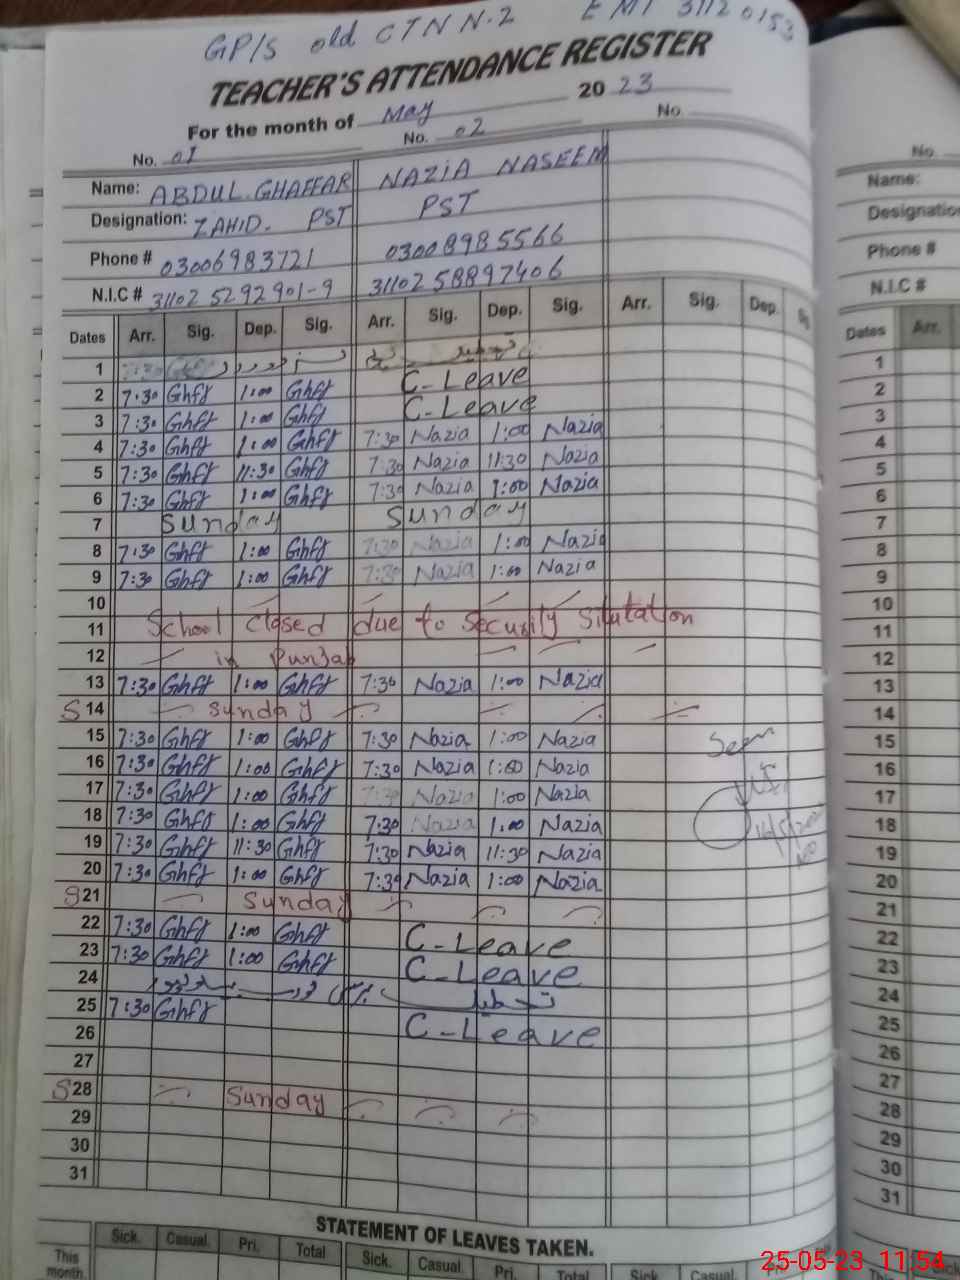 GP/S old CTN N.2 EMI 31120153
TEACHER'S ATTENDANCE REGISTER
For the month of May 2023
No. 01 No. 02 No.
Name: ABDUL.GHAFFAR NAZIA NASEEM
Designation: ZAHID. PST PST
Phone # 03006983721 03008985566
N.I.C # 31102 5292901-9 31102 58897406
Dates Arr. Sig. Dep. Sig. Arr. Sig. Dep. Sig. Arr. Sig. Dep.
1 تعطیل
2 7:30 Ghfr 1:00 Ghfr C-Leave
3 7:30 Ghfr 1:00 Ghfr C-Leave
4 7:30 Ghfr 1:00 Ghfr 7:30 Nazia 1:00 Nazia
5 7:30 Ghfr 11:30 Ghfr 7:30 Nazia 11:30 Nazia
6 7:30 Ghfr 1:00 Ghfr 7:30 Nazia 1:00 Nazia
7 Sunday Sunday
8 7:30 Ghfr 1:00 Ghfr 7:30 Nazia 1:00 Nazia
9 7:30 Ghfr 1:00 Ghfr 7:30 Nazia 1:00 Nazia
10
11 School closed due to Security Situtation
12 in Punjab
13 7:30 Ghfr 1:00 Ghfr 7:30 Nazia 1:00 Nazia
S 14 Sunday
15 7:30 Ghfr 1:00 Ghfr 7:30 Nazia 1:00 Nazia
16 7:30 Ghfr 1:00 Ghfr 7:30 Nazia 1:00 Nazia
17 7:30 Ghfr 1:00 Ghfr 7:30 Nazia 1:00 Nazia
18 7:30 Ghfr 1:00 Ghfr 7:30 Nazia 1:00 Nazia
19 7:30 Ghfr 11:30 Ghfr 7:30 Nazia 11:30 Nazia
20 7:30 Ghfr 1:00 Ghfr 7:30 Nazia 1:00 Nazia
S 21 Sunday
22 7:30 Ghfr 1:00 Ghfr C-Leave
23 7:30 Ghfr 1:00 Ghfr C-Leave
24 تعطیل
25 7:30 Ghfr C-Leave
26
27
S 28 Sunday
29
30
31
Seen
STATEMENT OF LEAVES TAKEN.
Sick. Casual. Pri. Total Sick. Casual. Pri. Total Sick. Casual
This month
No
Name:
Designatio
Phone #
N.I.C #
Dates Arr.
1
2
3
4
5
6
7
8
9
10
11
12
13
14
15
16
17
18
19
20
21
22
23
24
25
26
27
28
29
30
31
25-05-23 11:54